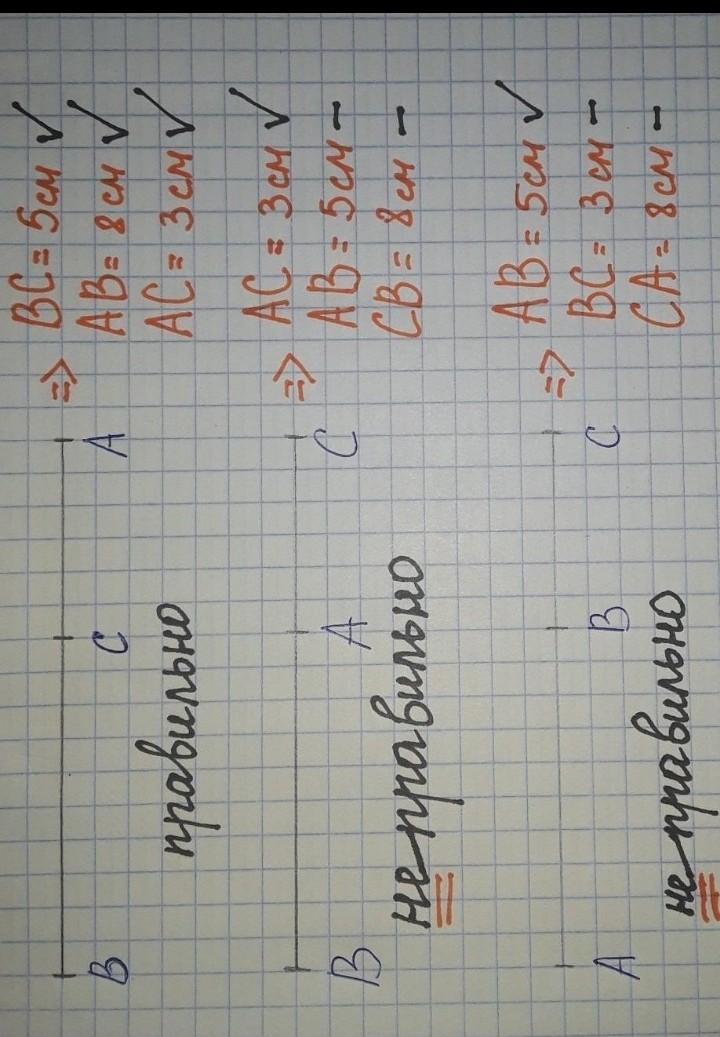 B C A
⇒ BC = 5см ✓
AB = 8см ✓
AC = 3см ✓
правильно
B A C
⇒ AC = 3см ✓
AB = 5см –
CB = 8см –
неправильно
A B C
⇒ AB = 5см ✓
BC = 3см –
CA = 8см –
неправильно